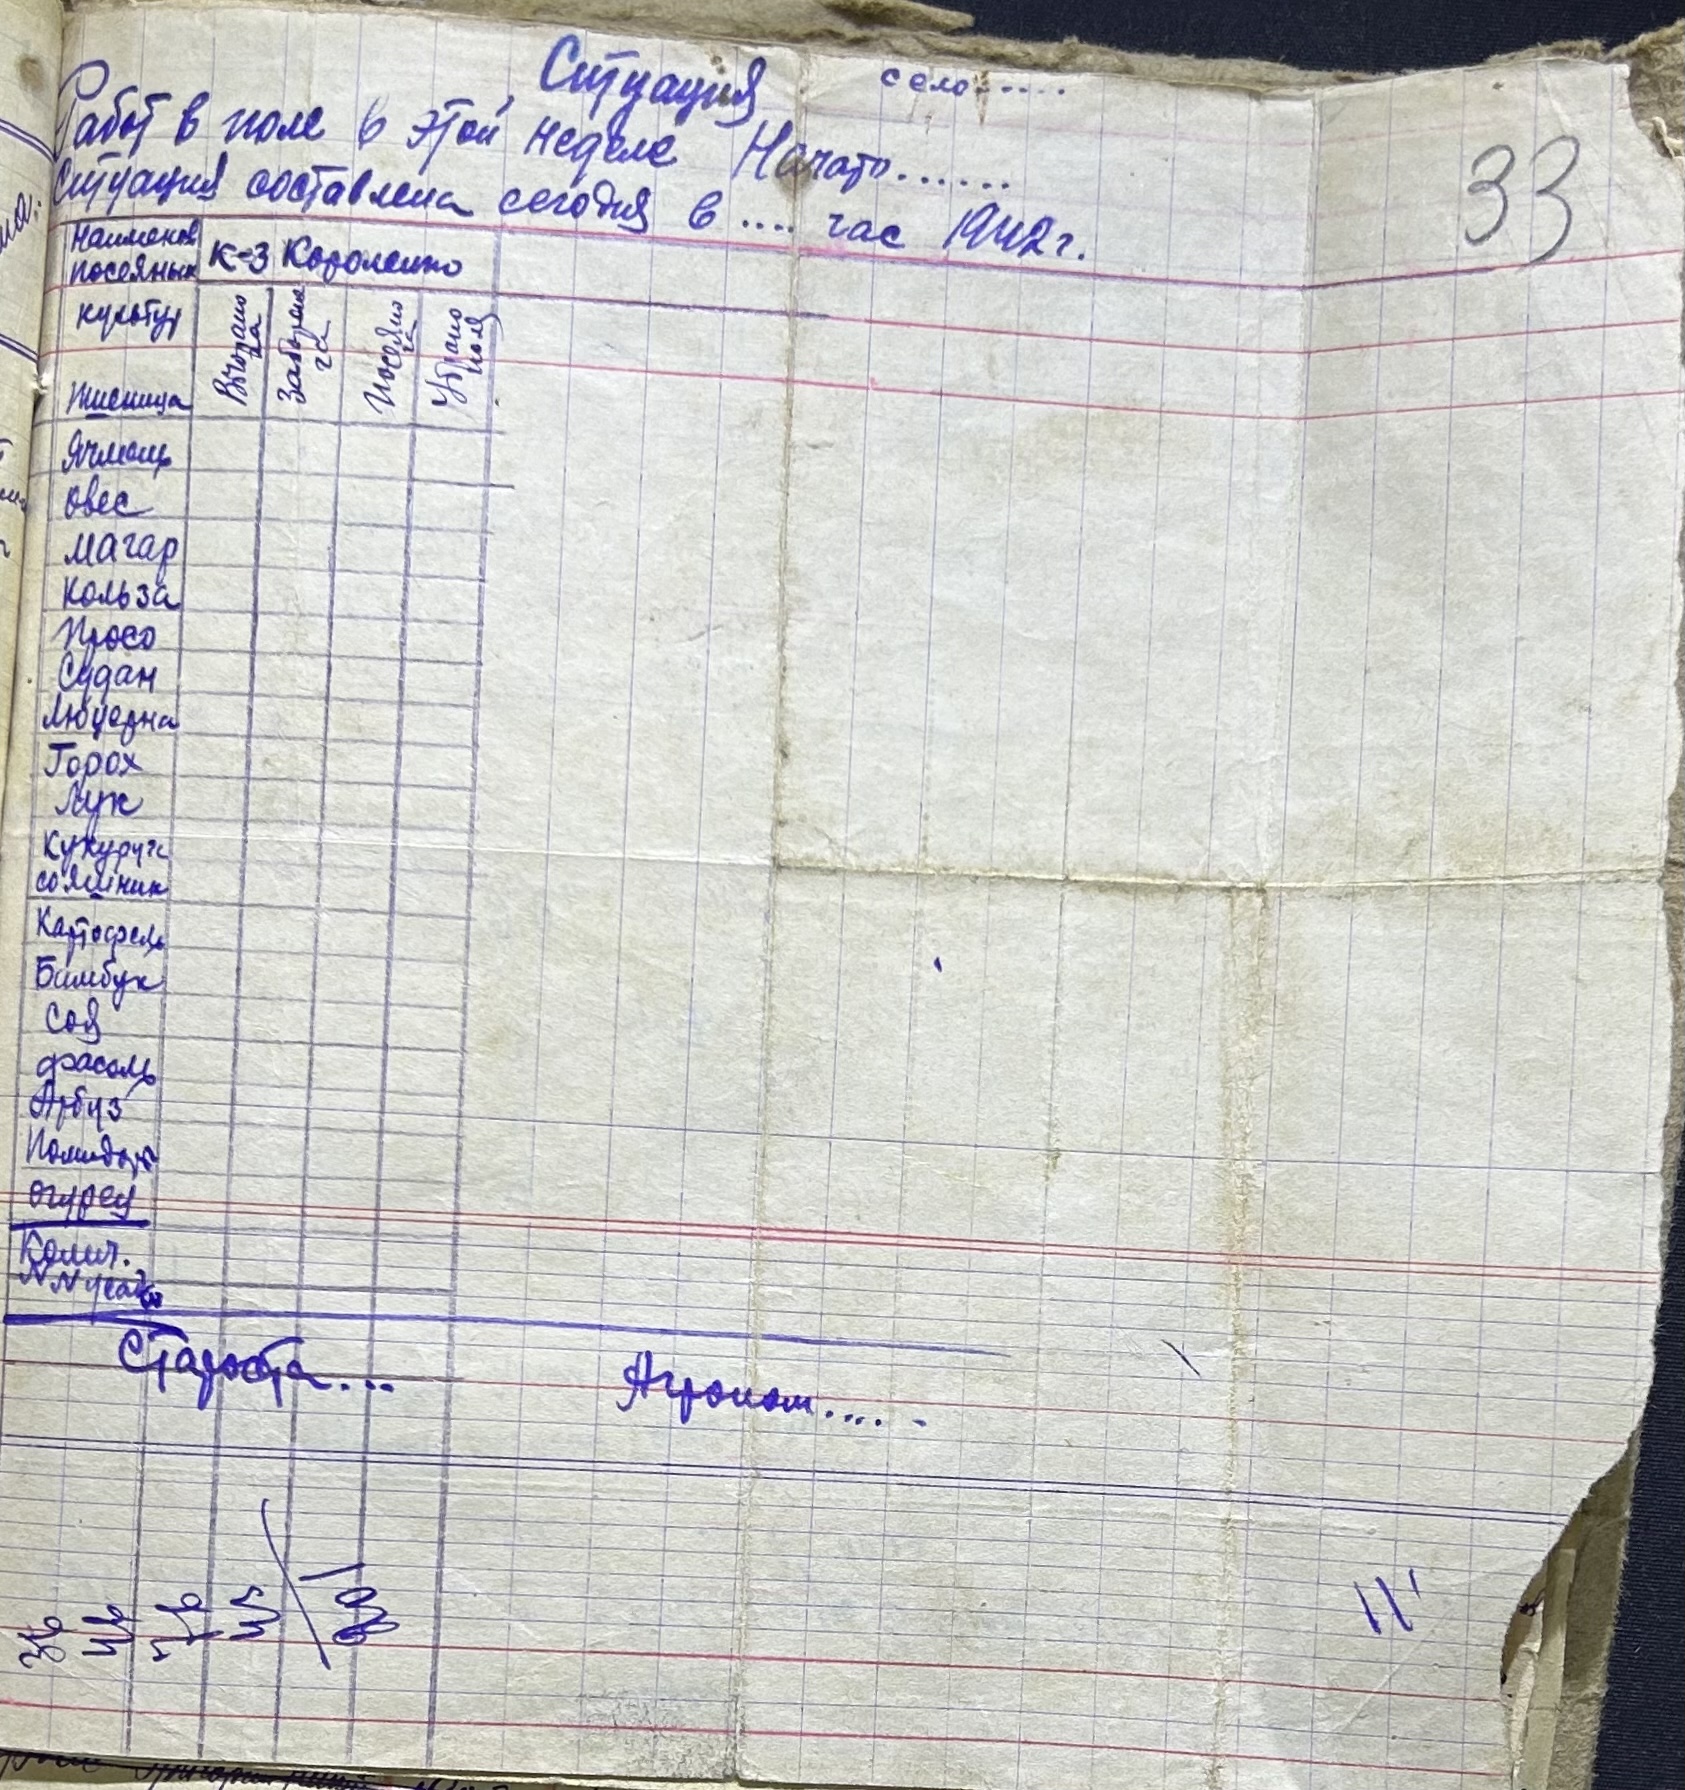 Ситуация село.....
33
Работ в поле в этой неделе Начато......
Ситуация составлена сегодня в .... час 1942 г.
Наименов посеяных культур
К-з Короленко
га
га
Посеяно га
Убрано поля
Пшеница
Ячмень
Овес
Магар
Кользa
Просо
Судан
Люцерна
Горох
Лук
Кукуруза
сояшник
Картофель
Бамбук
Соя
фасоль
Арбуз
Помидор
Огурец
Колич.
Староста...
Агроном.....
36
11